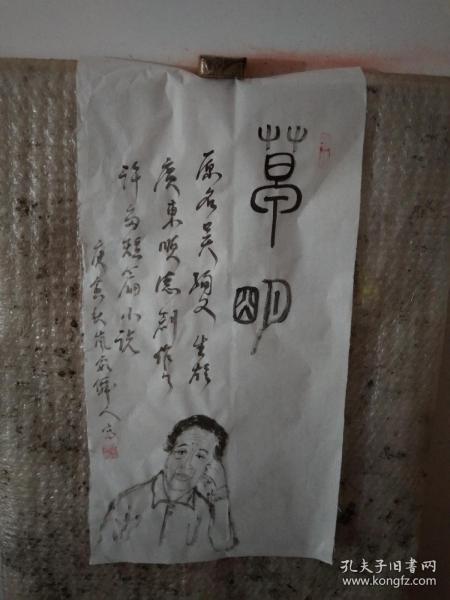 草朙
原名吴絢文 生於
廣東順德創作了
許多短篇小说
庚寅秋嵐
孔夫子旧书网
www.kongfz.com